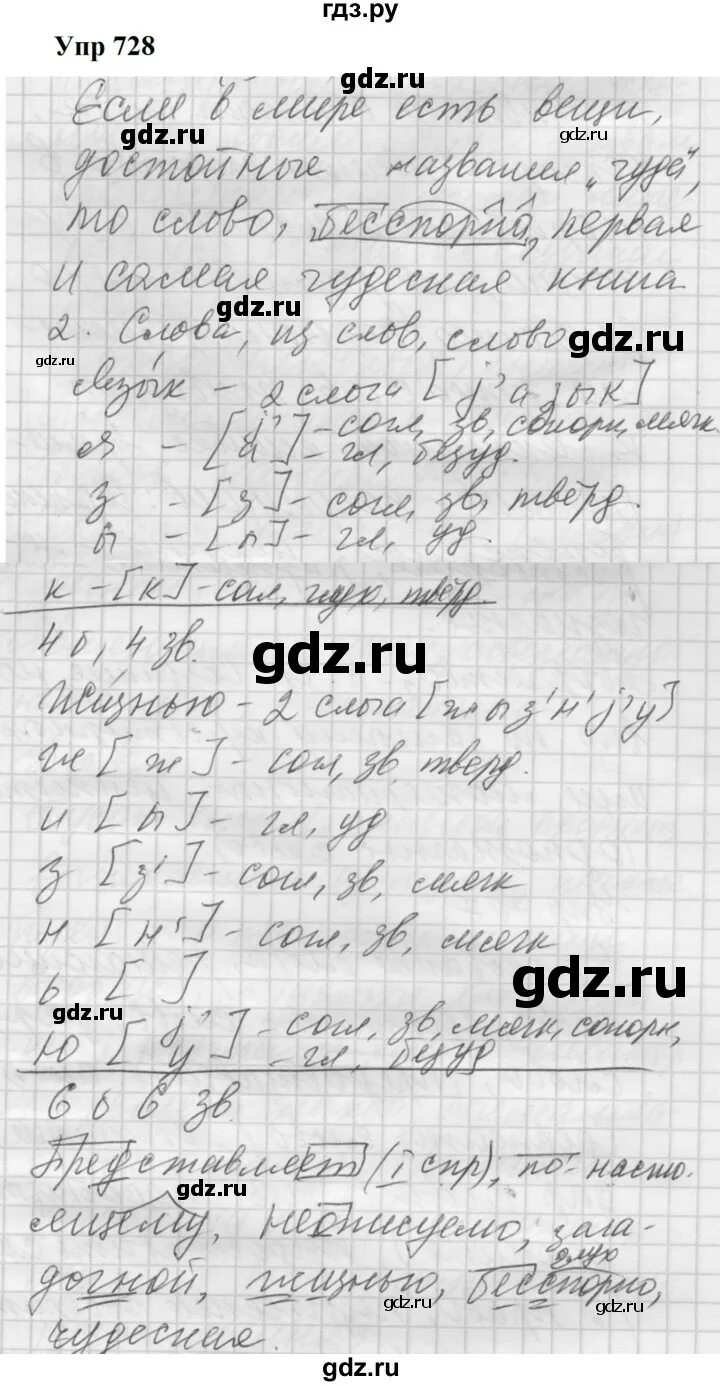 гдз.ру
Упр 728
Если в мире есть вещи,
достойные названия „чудо",
то слово, бесспорно, первая
и самая чудесная книга
2. Слова, из слов, слово
Язы́к – 2 слога [j'азык]
я – [j' – согл, зв, сонорн, мягк.
а] – гл, безуд.
з – [з] – согл, зв, твёрд.
ы – [ы] – гл, уд.
к – [к] – согл, глух, твёрд.
4 б, 4 зв.
Жи́знью – 2 слога [жыз'н'j'у]
ж [ж] – согл, зв. тверд.
и [ы] – гл, уд
з [з'] – согл, зв, мягк
н [н'] – согл, зв, мягк
ь [ ]
ю [j' – согл, зв, мягк, сонорн,
у] – гл, безуд
6 б 6 зв.
Представляет (I спр), по-насто-
ящему, неописуемо, зага-
глух
дочной, жизнью, бесспорно,
чудесная.
gdz.ru
gdz.ru
gdz.ru
gdz.ru
gdz.ru
gdz.ru
gdz.ru
gdz.ru
gdz.ru
gdz.ru
gdz.ru
gdz.ru
gdz.ru